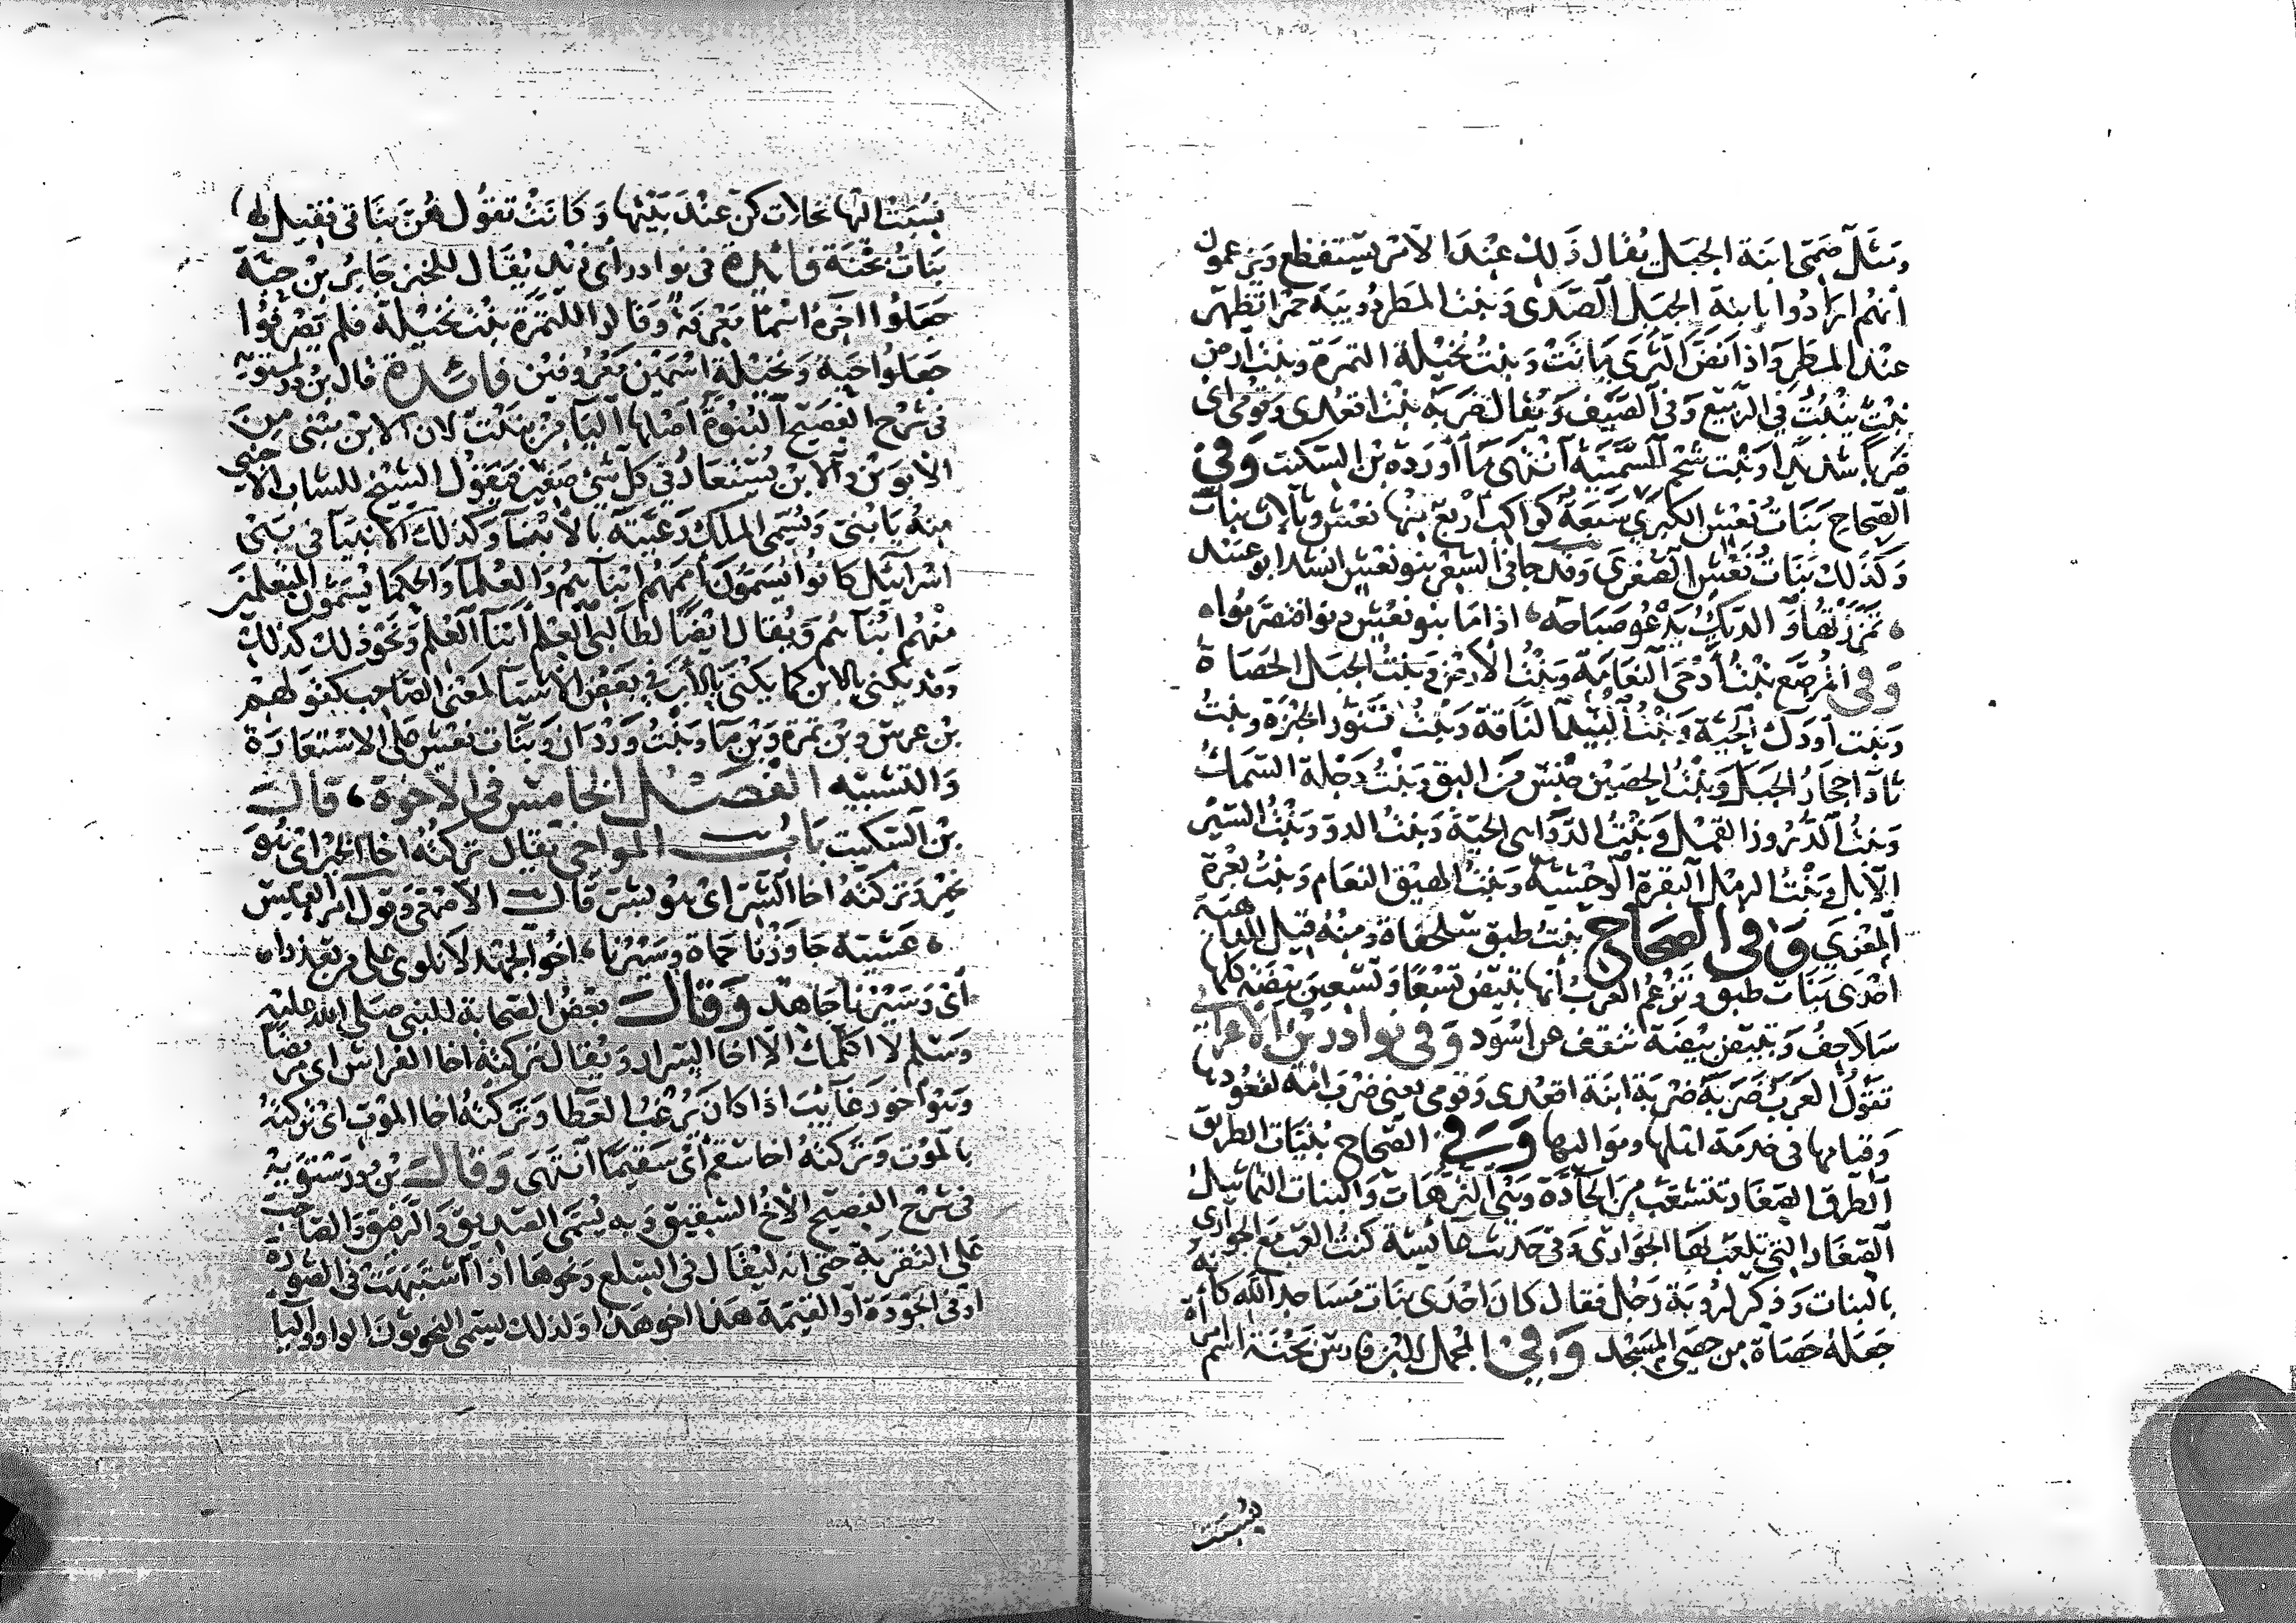 ومثل صمّي ابنة الجبل يقال ذلك عند الامر يستفظع ويزعمون
انهم ارادوا بابنة الجبل الصدى وبنت المطر دويبة حمرا تظهر
عند المطر واذا نضّ الثرى ماتت وبنت نخيلة التمرة وبنت ارض
نبت ينبت في الربيع وفي الصيف ويقال ضربه بنت اقعدى وقومى اى
ضربا شديدا وبنت شحم السمينة انتهى ما اورده بن السكيت وفي
الصحاح بنات نعش الكبرى سبعة كواكب اربع منها نعش وثلاث بنات
وكذلك بنات نعش الصغرى وقد جا في الشعر بنو نعش انشد ابو عبيد
تمززتها والديك يدعو صباحه اذا ما بنو نعش دنوا فتصوبوا
وفي المرصع بنت ادحى النعامة وبنت الارض وبنت الجبل الحصاة
وبنت اودك الحية وبنت البيدا الناقة وبنت تنور الخبزة وبنت
احجار الجبل وبنت الحصين جنس من البق وبنت دجلة السمك
وبنت الدروز القمل وبنت الدواهى الحية وبنت الدو وبنت السير
الابل وبنت الرمل البقرة الوحشية وبنت الهيق النعام وبنت بعرة
المعزى وفي الصحاح بنت طبق سلحفاة ومنه قيل للداهية
احدى بنات طبق وتزعم العرب انها تبيض تسعا وتسعين بيضة كلها
سلاحف وتبيض بيضة تنقف عن اسود وفي نوادر بن الاعرابي
تقول العرب ضربه ضربة ابنة اقعدى وقومى يعني ضرب امة لقعودها
وقيامها في خدمة اهلها ومواليها وفي الصحاح بنيات الطريق
الطرق الصغار تتشعب من الجادة وهي الترهات والبنات التماثيل
الصغار التي تلعب بها الجوارى وفي حديث عائشة كنت العب مع الجوارى
بالبنات وذكر لروبة رجل فقال كان احدى بنات مساجد الله كانه
جعله حصاة من حصى المسجد وفي المجمل لابن فارس بحنة اسم امراة
نسبت
نسبت اليها نخلات كن عند بيتها وكانت تقول هن بناتى فقيل لها
بنات بحنة فائدة في نوادر ابى زيد يقال للخبز جابر بن حبة
جعلوا اخره اسما معرفة وقالوا للتمرة بنت نخيلة فلم يصرفوا
جعلوا حبة ونخيلة اسمين معروفين فائدة قال بن درستويه
في شرح الفصيح البنوة اصلها اليا من بنيت لان الابن مبنى من
الابوين والابن يستعار في كل شئ صغير فيقول الشيخ للشاب الاجنبي
منه يا بنى ويسمى الملك رعيته بالابنا وكذلك الانبيا في بنى
اسرائيل كانوا يسمون اممهم ابناهم والعلما والحكما يسمون المتعلمين
منهم ابناهم ويقال ايضا لطالبي العلم ابنا العلم ونحو ذلك كذلك
وقد يكنى بالابن كما يكنى بالاب في بعض الاشيا لمعنى الصاحب كقولهم
بن عرس وبن تمرة وبن ما وبنت وردان وبنات نعش على الاستعارة
والتشبيه الفصل الخامس في الاخوة قال
بن السكيت باب المواخي يقال تركته اخا الخير اى هو
بخير وتركته اخا الشر اى هو بشر قال الاصمعى وقول امرى القيس
عشية جاوزنا حماة وسيرنا اخو الجهد لا نلوى على من تعذرا
اى وسيرنا جاهد وقال بعض الصحابة للنبي صلى الله عليه
وسلم لا اكلمك الا اخا السرار ويقال تركته اخا الفراش اى مريضا
وهو اخو رغائب اذا كان يرغب العطا وتركته اخا الموت اى تركته
بالموت وتركته اخا سقم اى سقيما انتهى وقال بن درستويه
في شرح الفصيح الاخ الشقيق وبه يسمى الصديق والرفيق والصاحب
على التقريب حتى انه ليقال في السلع ونحوها اذا اشتبهت في الصورة
او في الجودة او القيمة هذا اخو هذا ولذلك يسمى النحويون الواو واليا